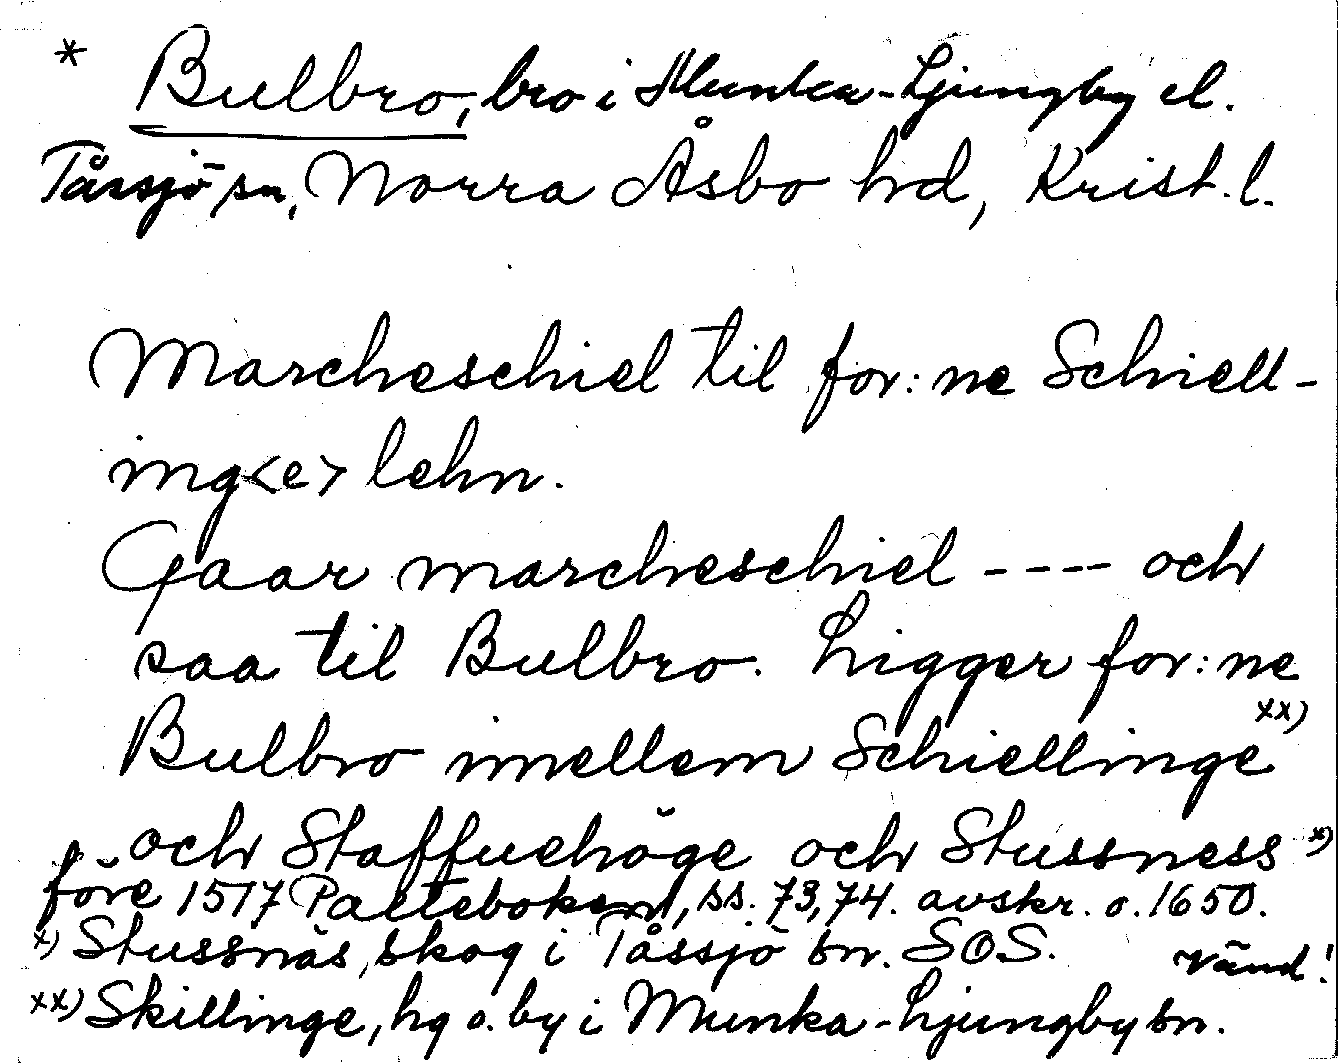 * Bulbro, bro i Munka-Ljungby el.
Tåssjö sn, Norra Åsbo hd, Krist. l.
Marcheschiel til for:ne Schiell-
ing<e> lehn.
Gaar marcheschiel ---- och
saa til Bulbro. Ligger for:ne
Bulbro imellem Schiellinge xx)
och Staffuehöge och Stussness x)
före 1517 Palteboken, ss. 73, 74. avskr. o. 1650.
x) Stussnäs, skog i Tåssjö sn. SOS. Vänd!
xx) Skillinge, hg o. by i Munka-Ljungby sn.